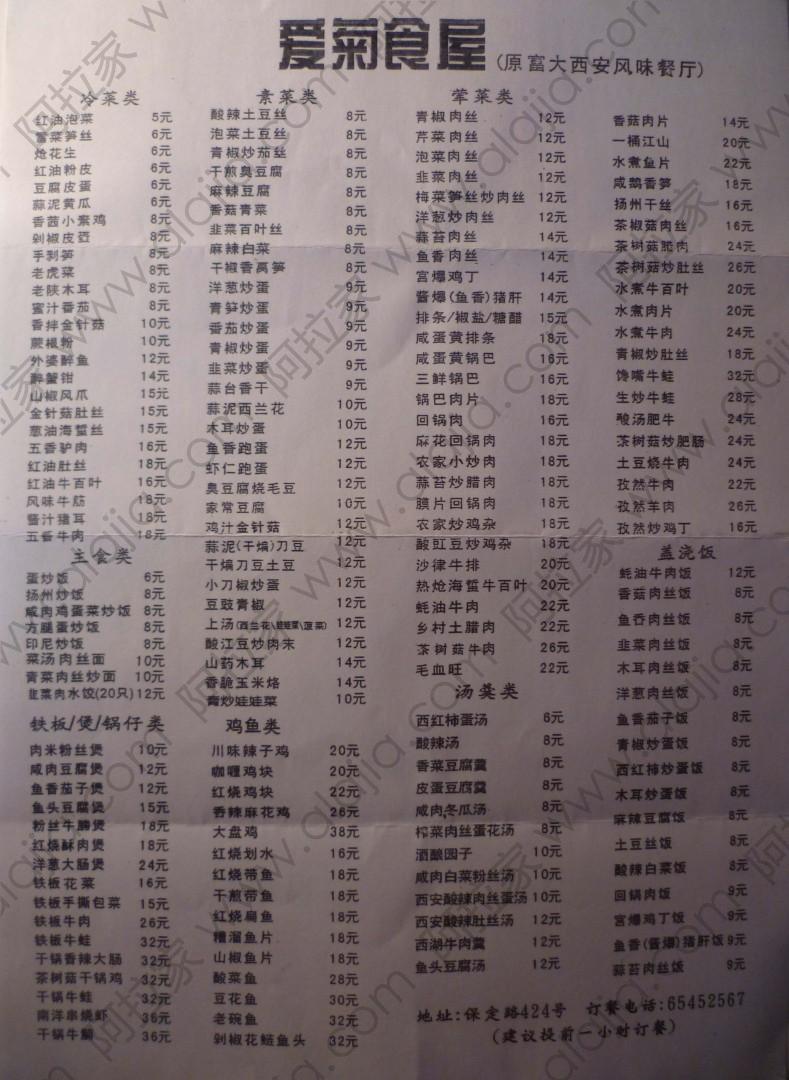 爱菊食屋(原富大西安风味餐厅)
冷菜类
红油泡菜 5元
雪菜笋丝 6元
炝花生 6元
红油粉皮 6元
豆腐皮蛋 6元
蒜泥黄瓜 6元
香茜小素鸡 8元
剁椒皮蛋 8元
手剥笋 8元
老虎菜 8元
老陕木耳 8元
蜜汁番茄 8元
香拌金针菇 10元
蕨根粉 10元
外婆醉鱼 12元
醉蟹钳 14元
山椒凤爪 15元
金针菇肚丝 15元
葱油海蜇丝 15元
五香驴肉 16元
红油肚丝 18元
红油牛百叶 16元
风味牛筋 18元
酱汁猪耳 18元
五香牛肉 18元
主食类
蛋炒饭 6元
扬州炒饭 8元
咸肉鸡蛋菜炒饭 8元
方腿蛋炒饭 8元
印尼炒饭 8元
菜汤肉丝面 10元
青菜肉丝炒面 10元
韭菜肉水饺(20只) 12元
铁板/煲/锅仔类
肉米粉丝煲 10元
咸肉豆腐煲 12元
鱼香茄子煲 12元
鱼头豆腐煲 15元
粉丝牛腩煲 18元
红烧酥肉煲 18元
洋葱大肠煲 24元
铁板花菜 16元
铁板手撕包菜 15元
铁板牛肉 26元
铁板牛蛙 32元
干锅香辣大肠 32元
茶树菇干锅鸡 32元
干锅牛蛙 32元
南洋串烧虾 36元
干锅牛腩 36元
素菜类
酸辣土豆丝 8元
泡菜土豆丝 8元
青椒炒茄丝 8元
干煎臭豆腐 8元
麻辣豆腐 8元
香菇青菜 8元
韭菜百叶丝 8元
麻辣白菜 8元
干椒香莴笋 8元
洋葱炒蛋 9元
青笋炒蛋 9元
番茄炒蛋 9元
青椒炒蛋 9元
韭菜炒蛋 9元
蒜台香干 9元
蒜泥西兰花 10元
木耳炒蛋 10元
鱼香跑蛋 12元
虾仁跑蛋 12元
臭豆腐烧毛豆 12元
家常豆腐 10元
鸡汁金针菇 12元
蒜泥(干煸)刀豆 12元
干煸刀豆土豆 12元
小刀椒炒蛋 12元
豆鼓青椒 12元
上汤(西兰花\娃娃菜\菠菜) 12元
酸江豆炒肉末 12元
山药木耳 14元
香脆玉米烙 14元
青炒娃娃菜 10元
鸡鱼类
川味辣子鸡 20元
咖喱鸡块 20元
红烧鸡块 22元
香辣麻花鸡 26元
大盘鸡 38元
红烧划水 16元
红烧带鱼 18元
干煎带鱼 18元
红烧扁鱼 18元
糟溜鱼片 18元
山椒鱼片 18元
酸菜鱼 28元
豆花鱼 30元
老碗鱼 32元
剁椒花鲢鱼头 32元
荤菜类
青椒肉丝 12元
芹菜肉丝 12元
泡菜肉丝 12元
韭菜肉丝 12元
梅菜笋丝炒肉丝 12元
洋葱炒肉丝 12元
蒜苔肉丝 14元
鱼香肉丝 14元
宫爆鸡丁 14元
酱爆(鱼香)猪肝 14元
排条/椒盐/糖醋 15元
咸蛋黄排条 18元
咸蛋黄锅巴 16元
三鲜锅巴 16元
锅巴肉片 18元
回锅肉 16元
麻花回锅肉 18元
农家小炒肉 18元
蒜苔炒腊肉 18元
膜片回锅肉 18元
农家炒鸡杂 18元
酸豇豆炒鸡杂 18元
沙律牛排 20元
热炝海蜇牛百叶 20元
蚝油牛肉 22元
乡村土腊肉 22元
茶树菇牛肉 26元
毛血旺 22元
汤羹类
西红柿蛋汤 6元
酸辣汤 8元
香菜豆腐羹 8元
皮蛋豆腐羹 8元
咸肉冬瓜汤 8元
榨菜肉丝蛋花汤 8元
酒酿园子 10元
咸肉白菜粉丝汤 10元
西安酸辣肉丝蛋汤 10元
西安酸辣肚丝汤 12元
西湖牛肉羹 12元
鱼头豆腐汤 12元
香菇肉片 14元
一桶江山 20元
水煮鱼片 22元
咸鹅香笋 18元
扬州干丝 16元
茶椒菇肉丝 16元
茶树菇肥肉 24元
茶树菇炒肚丝 26元
水煮牛百叶 20元
水煮肉片 20元
水煮牛肉 24元
青椒炒肚丝 18元
馋嘴牛蛙 32元
生炒牛蛙 28元
酸汤肥牛 24元
茶树菇炒肥肠 24元
土豆烧牛肉 24元
孜然牛肉 22元
孜然羊肉 26元
孜然炒鸡丁 16元
盖浇饭
蚝油牛肉饭 12元
香菇肉丝饭 8元
鱼香肉丝饭 8元
韭菜肉丝饭 8元
木耳肉丝饭 8元
洋葱肉丝饭 8元
鱼番茄子饭 8元
青椒炒蛋饭 8元
西红柿炒蛋饭 8元
木耳炒蛋饭 8元
麻辣豆腐饭 8元
土豆丝饭 8元
酸辣白菜饭 8元
回锅肉饭 9元
宫爆鸡丁饭 9元
鱼香(酱爆)猪肝饭 9元
蒜苔肉丝饭 9元
地址:保定路424号 订餐电话:65452567
(建议提前一小时订餐)
阿拉家 www.alajia.com